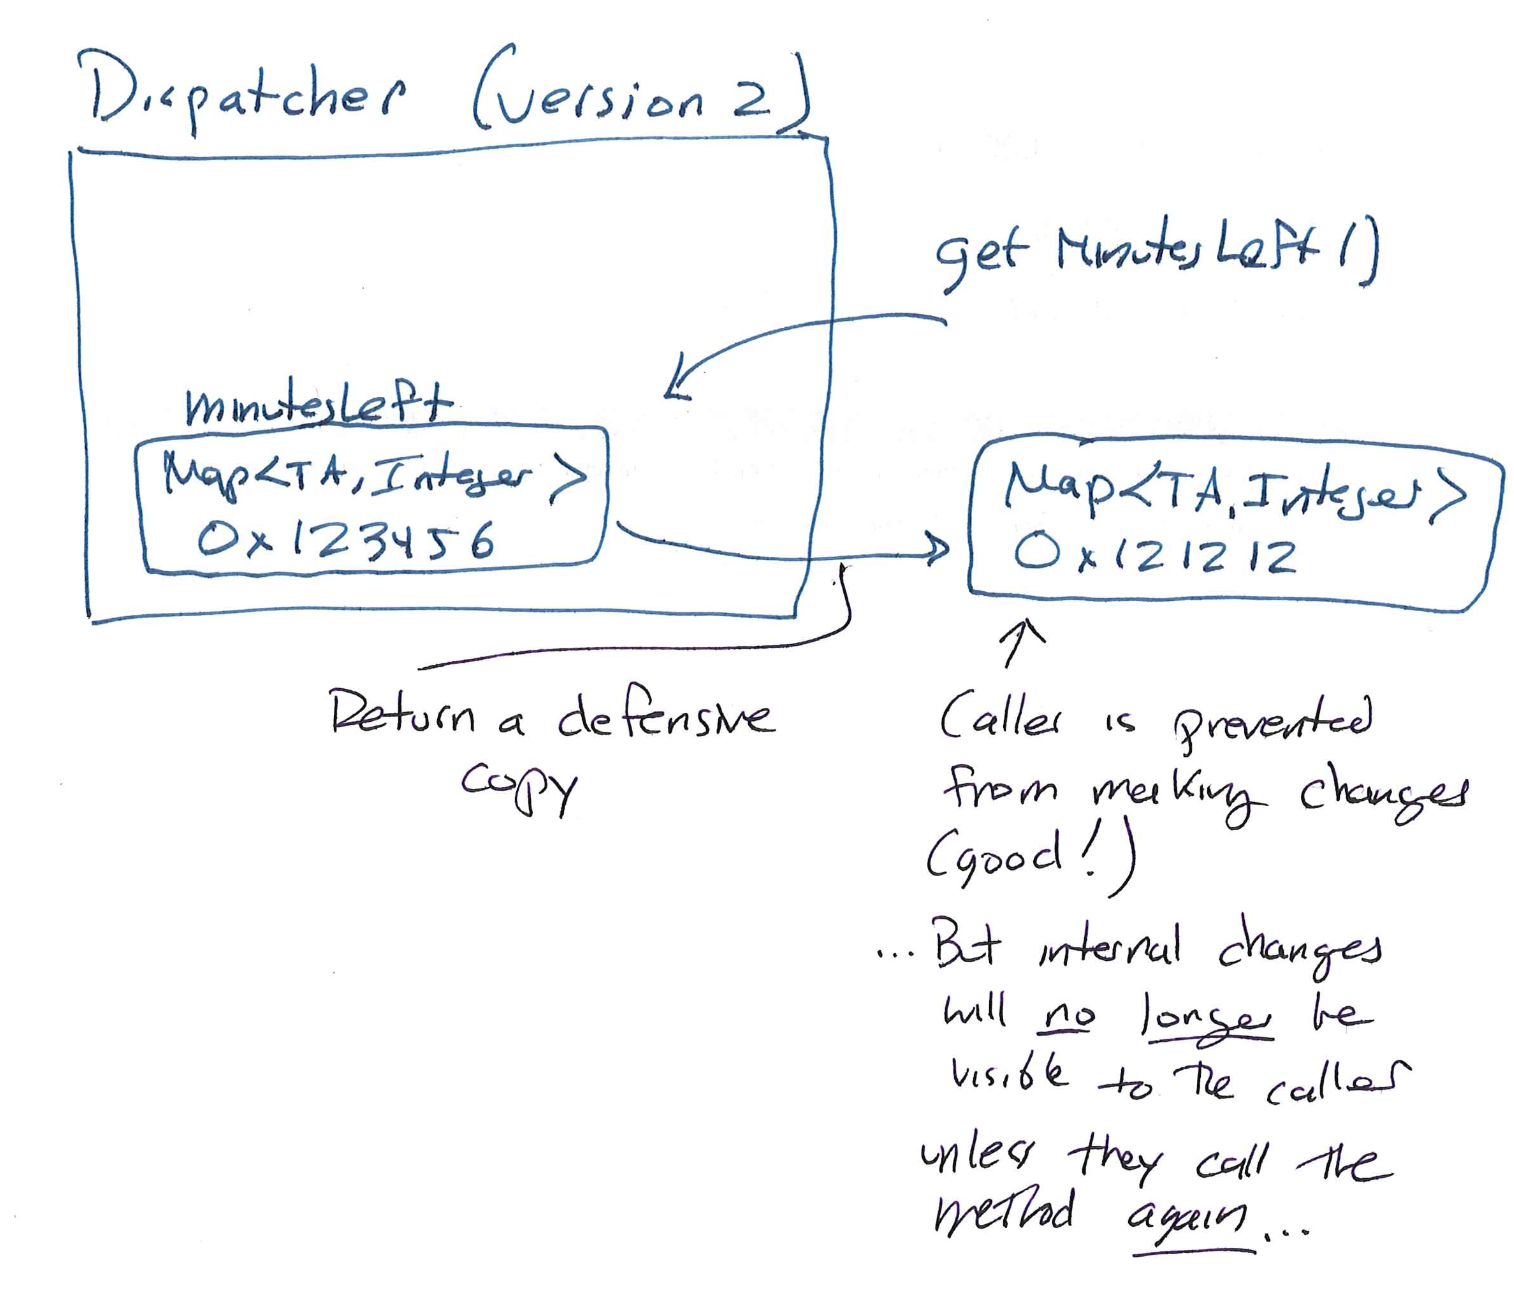 Dispatcher (version 2)
getMinutesLeft()
minutesLeft
Map<TA, Integer>
0x123456
Map<TA, Integer>
0x121212
Return a defensive
copy
Caller is prevented
from making changes
(good!)
... But internal changes
will no longer be
visible to the caller
unless they call the
method again...